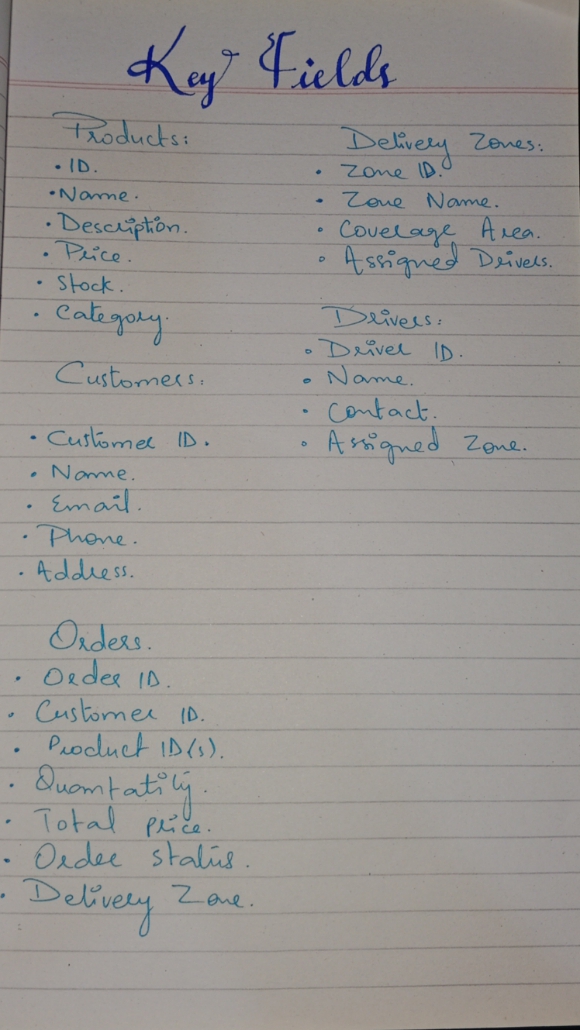 Key Fields
Products:
• ID.
• Name.
• Description.
• Price.
• Stock.
• Category.
Customers:
• Customer ID.
• Name.
• Email.
• Phone.
• Address.
Orders.
• Order ID.
• Customer ID.
• Product ID(s).
• Quantatity.
• Total price.
• Order status.
• Delivery Zone.
Delivery Zones:
• Zone ID.
• Zone Name.
• Coverage Area.
• Assigned Drivers.
Drivers:
• Driver ID.
• Name.
• Contact.
• Assigned Zone.